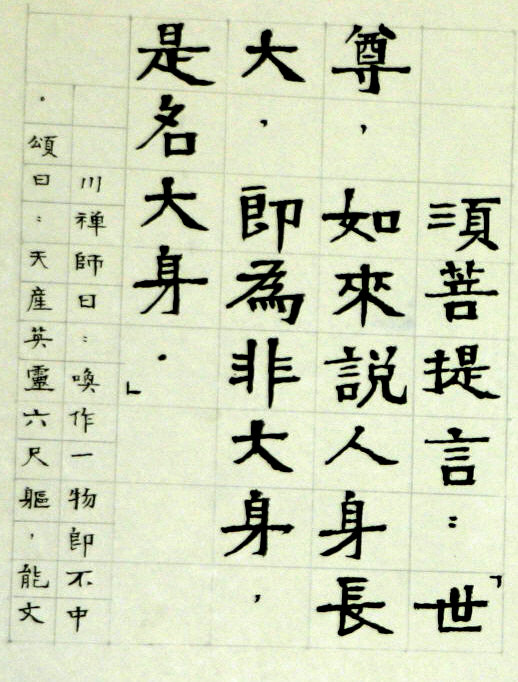 須菩提言：「世
尊，如來説人身長
大，即為非大身，
是名大身．」
川禅師曰：喚作一物即不中
。頌曰：天産英靈六尺軀，能文